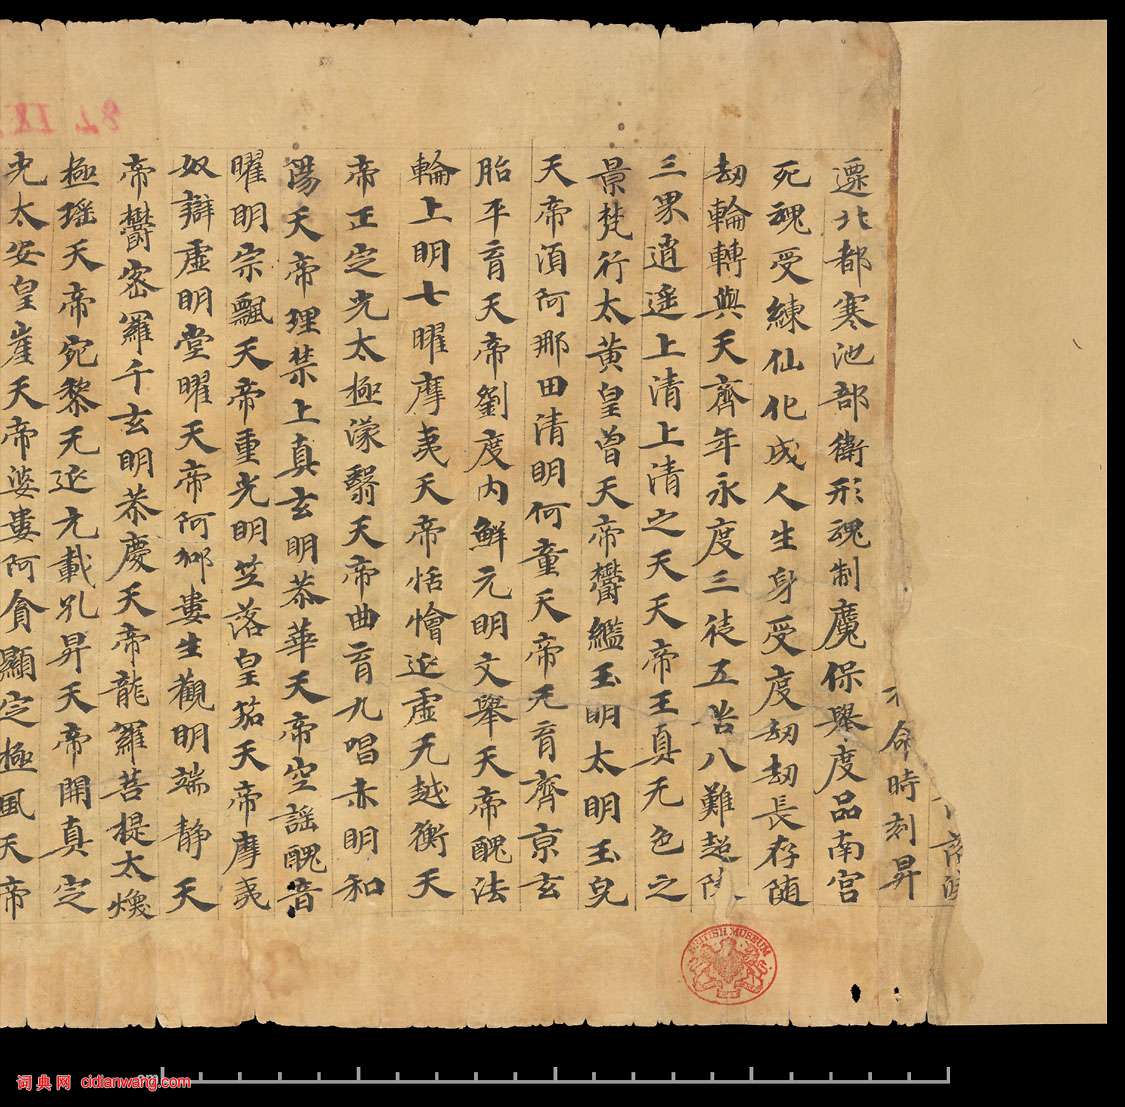 時
命時刻昇
遷北都寒池部衛形魂制魔保舉度品南宮
死魂受練仙化成人生身受度劫劫長存随
劫輪轉與天齊年永度三徒五苦八難超
三界逍遥上清上清之天天帝玉真无色之
景梵行太黄皇曾天帝欝繿玉明太明玉皃
天帝湏阿那田清明何童天帝无育齊京玄
胎平育天帝劉度内鮮元明文舉天帝醜法
輪上明七曜摩夷天帝恬憎延虚无越衡天
帝正定光太極濛翳天帝曲育九唱赤明和
陽天帝理禁上真玄明恭華天帝空謡醜音
曜明宗飄天帝重光明笠落皇笳天帝摩夷
奴辯虚明堂曜天帝阿郍婁生觀明端静天
帝欝密羅千玄明恭慶天帝龍羅菩提太煥
極瑶天帝宛黎无延元載孔昇天帝開真定
光太安皇崖天帝婆婁阿貪顯定極風天帝
BRITISH MUSEUM
词典网 cidianwang.com